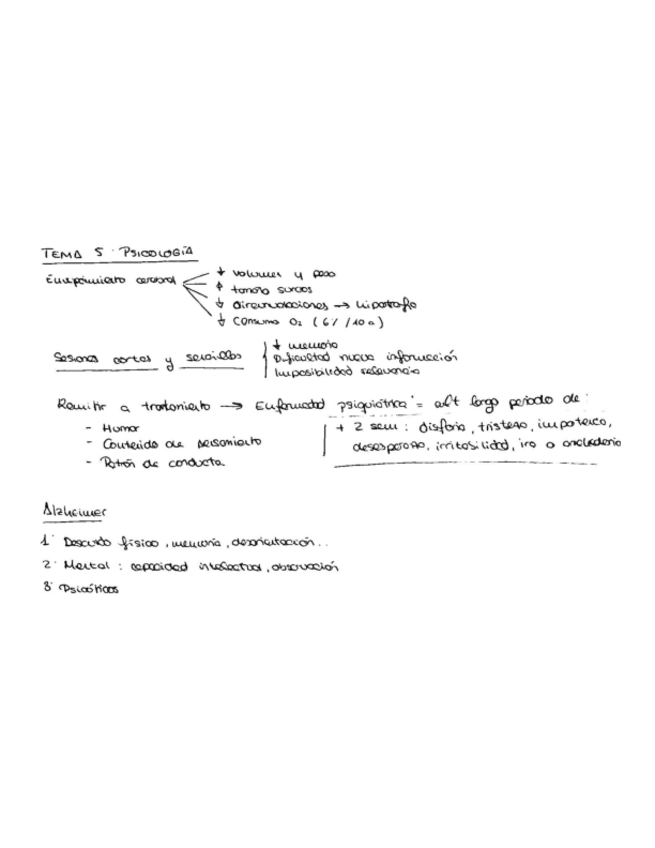 TEMA 5: PSICOLOGÍA
Envejecimiento cerebral
↓ volumen y peso
↑ tamaño surcos
↓ circunvoluciones → hipertrofia
↓ consumo O2 (6% /10a)
Sesiones cortas y sencillas
↓ memoria
Dificultad nueva información
Imposibilidad relevancia
Remitir a tratamiento → Enfermedad psiquiátrica = alt largo periodo de:
- Humor
- Contenido de pensamiento
- Patrón de conducta
+ 2 sem: disforia, tristeza, impotencia,
desesperanza, irritabilidad, ira o anhedonia
Alzheimer
1. Descuido físico, memoria, desorientación..
2. Mental: capacidad intelectual, observación
3. Psicóticos